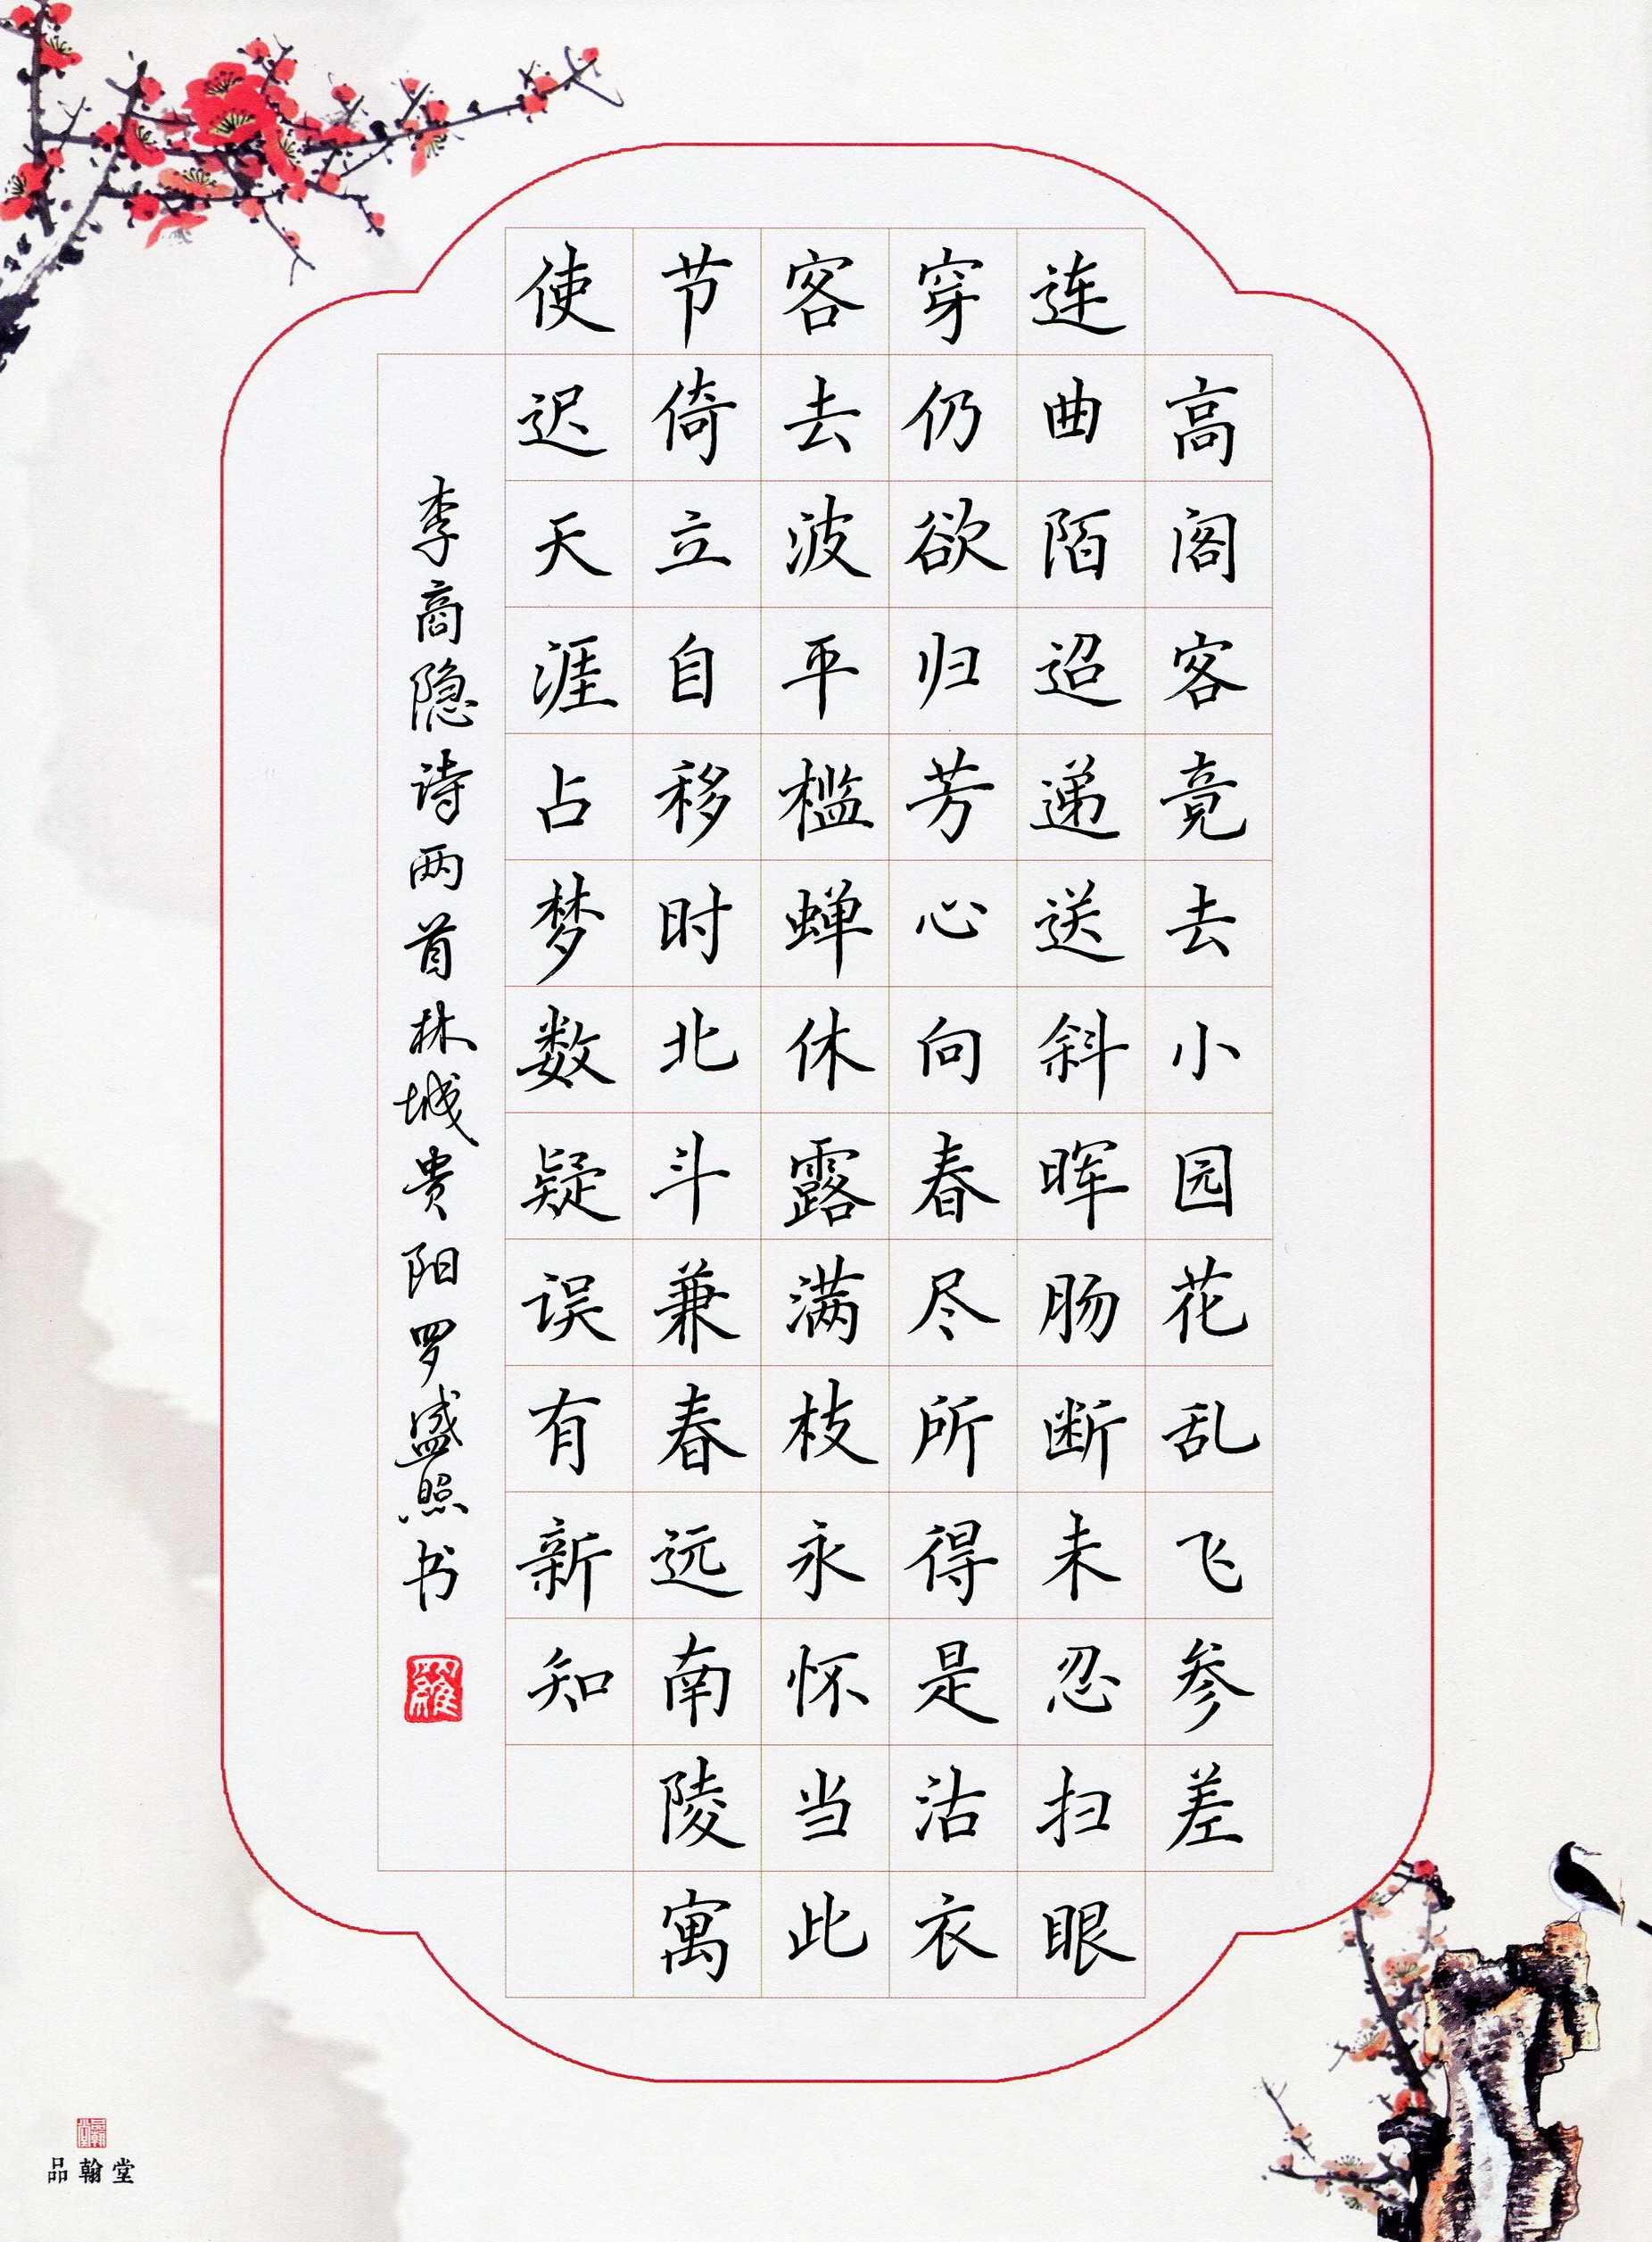 高阁客竟去小园花乱飞参差
连曲陌迢递送斜晖肠断未忍扫眼
穿仍欲归芳心向春尽所得是沾衣
客去波平槛蝉休露满枝永怀当此
节倚立自移时北斗兼春远南陵寓
使迟天涯占梦数疑误有新知
李商隐诗两首林城贵阳罗盛照书
羅
品翰堂
品翰堂